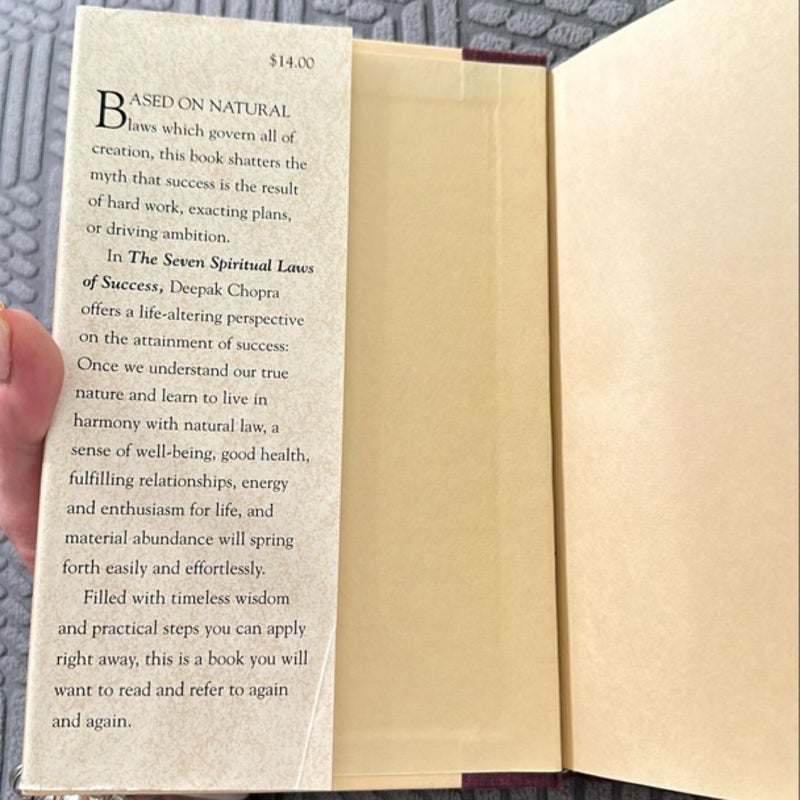 $14.00
BASED ON NATURAL
laws which govern all of
creation, this book shatters the
myth that success is the result
of hard work, exacting plans,
or driving ambition.
In The Seven Spiritual Laws
of Success, Deepak Chopra
offers a life-altering perspective
on the attainment of success:
Once we understand our true
nature and learn to live in
harmony with natural law, a
sense of well-being, good health,
fulfilling relationships, energy
and enthusiasm for life, and
material abundance will spring
forth easily and effortlessly.
Filled with timeless wisdom
and practical steps you can apply
right away, this is a book you will
want to read and refer to again
and again.